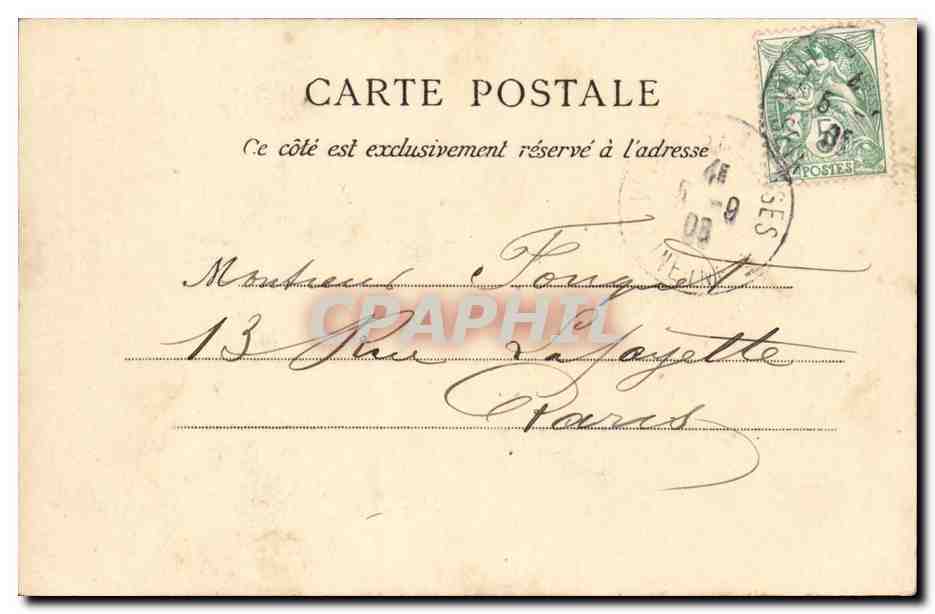 CARTE POSTALE
Ce côté est exclusivement réservé à l'adresse
5
POSTES
45
5 -9
05
Monsieur Fouquet
CPAPHIL
13 Rue Lafayette
Paris